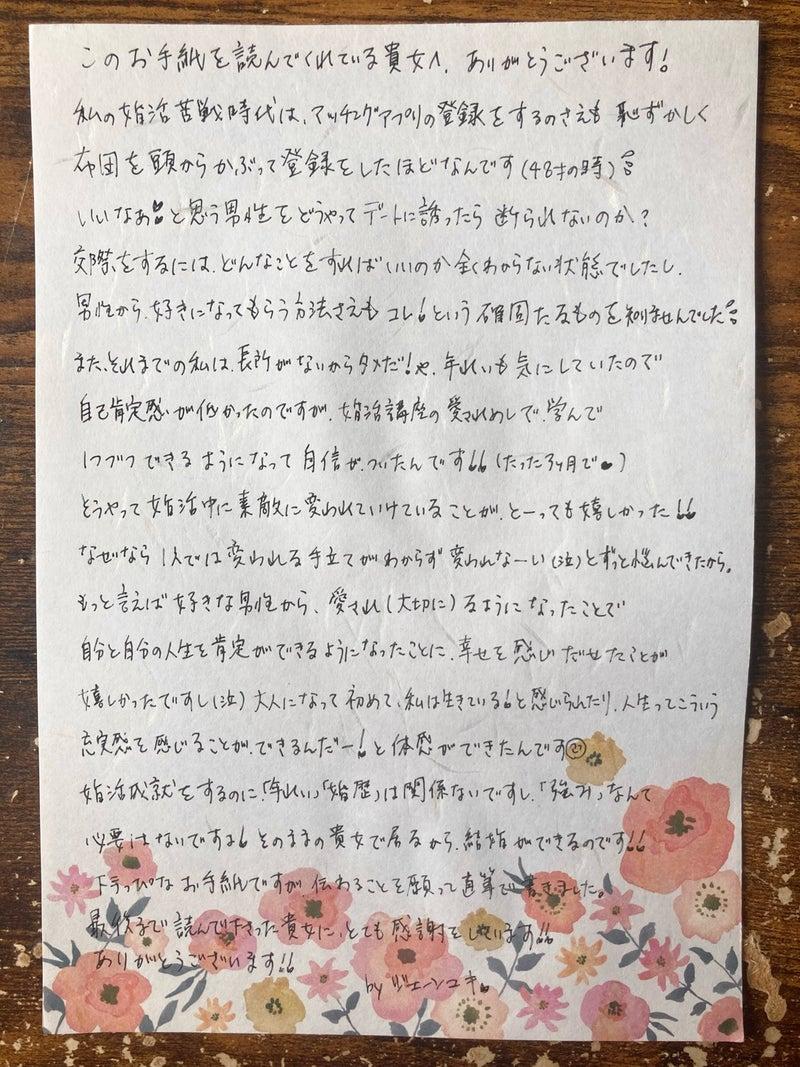 このお手紙を読んでくれている貴女へ、ありがとうございます!
私の婚活苦戦時代は、マッチングアプリの登録をするのさえも 恥ずかしく
布団を頭からかぶって登録をしたほどなんです(48才の時)
いいなぁ と思う男性をどうやってデートに誘ったら 断られないのか?
交際をするには、どんなことをすればいいのか全くわからない状態でしたし、
男性から、好きになってもらう方法さえも コレ!という確固たるものを知りませんでした
また、それまでの私は、長所がないからダメだ!や、年れいも気にしていたので
自己肯定感が低かったのですが、婚活講座の愛されめしで、学んで
1つづつできるようになって自信がついたんです!!(たった3ヶ月で♥)
そうやって婚活中に素敵に変われていけていることが、と一っても嬉しかった!!
なぜなら 1人では変われる手立てがわからず 変われなーい(泣)とずっと悩んできたから。
もっと言えば好きな男性から、愛され(大切に)るようになったことで
自分と自分の人生を肯定ができるようになったことに、幸せを感じだせたことが
嬉しかったですし(泣)大人になって初めて、私は生きている!と感じられたり、人生ってこういう
充実感を感じることができるんだー!と体感ができたんです
婚活成就をするのに、「年れい」「婚歴」は関係ないですし、「強み」なんて
必要はないですよ!そのままの貴女で居るから、結婚ができるのです!!
下手っぴなお手紙ですが、伝わることを願って直筆で書きました。
最後まで読んで下さった貴女に、とても感謝をしています!!
ありがとうございます!!
by ジェーンユキ